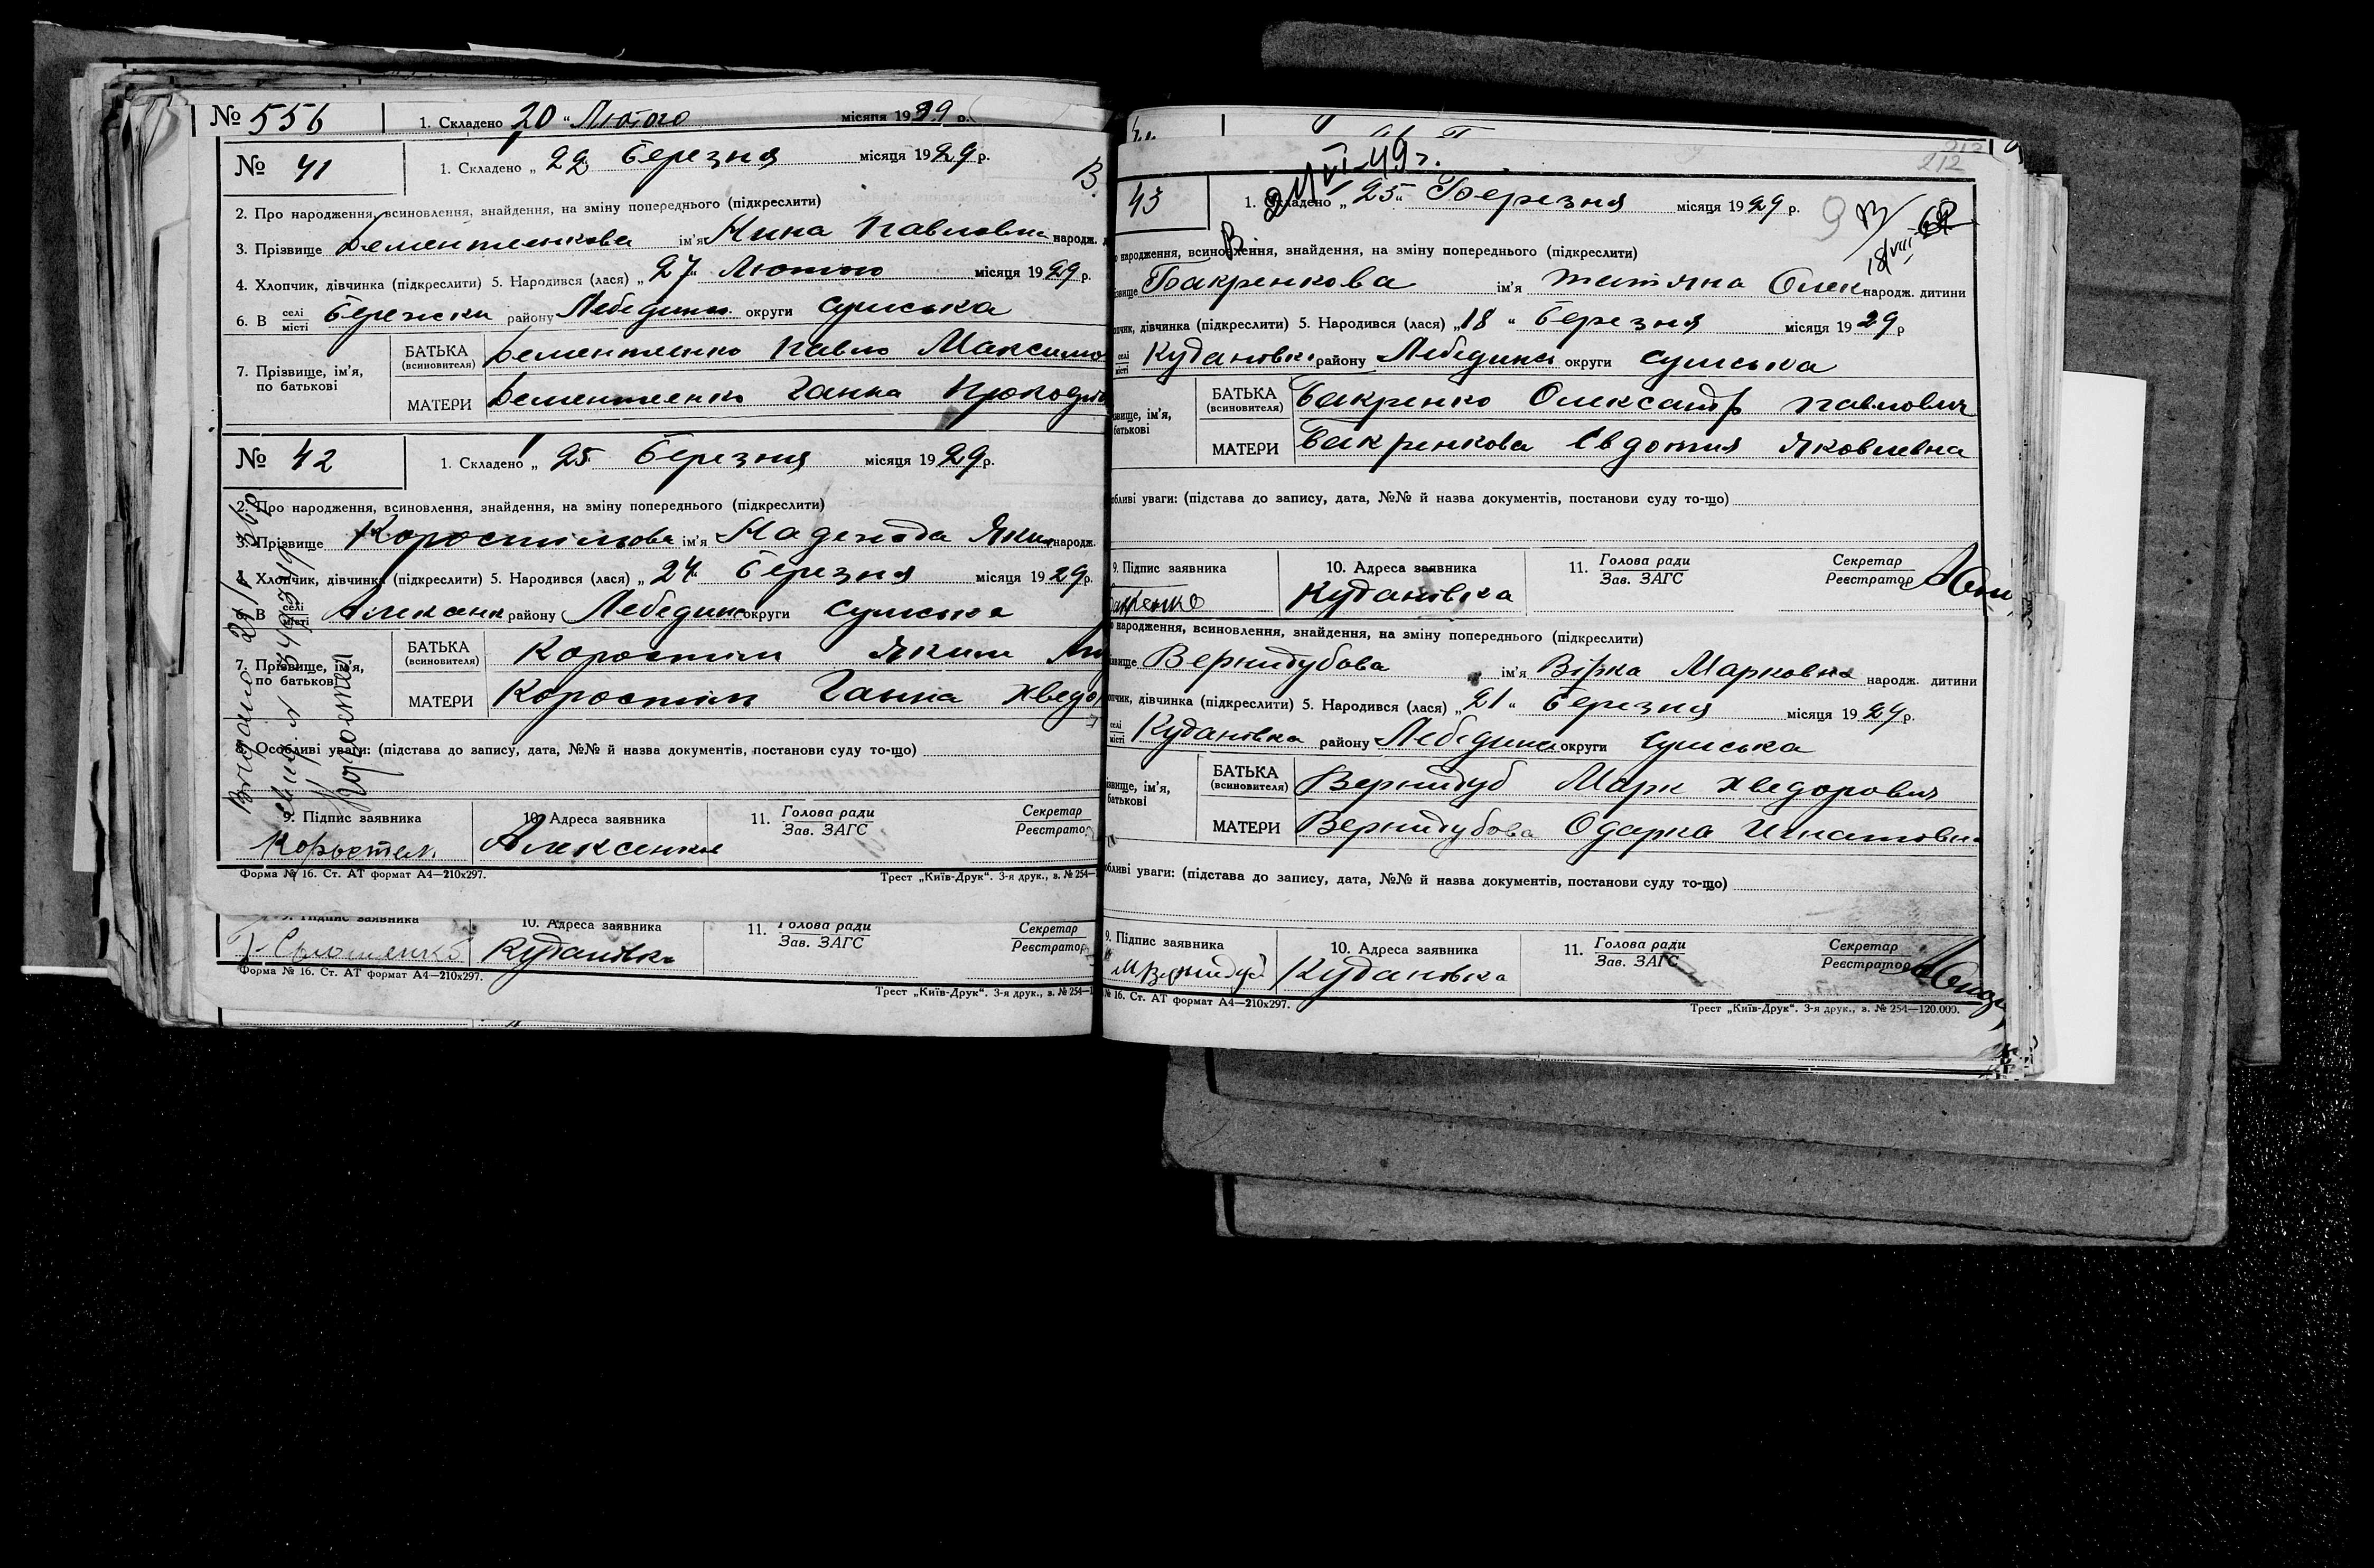 № 556 1. Складено 20 " Лютого місяця 1929 р.
№ 41 1. Складено „ 22 Березня місяця 1929 р.
В
2. Про народження, всиновлення, знайдення, на зміну попереднього (підкреслити)
3. Прізвище Дементієнкова ім'я Нина Павловна народж.
4. Хлопчик, дівчинка (підкреслити) 5. Народився (лася) „ 27 " Лютого місяця 1929 р.
6. В селі/місті Бережки району Лебединськ. округи Сумська
7. Прізвище, ім'я, по батькові БАТЬКА (всиновителя) Дементієнко Павло Максимо
МАТЕРИ Дементієнко Ганна
№ 42 1. Складено „ 25 Березня місяця 1929 р.
2. Про народження, всиновлення, знайдення, на зміну попереднього (підкреслити)
3. Прізвище Коростильова ім'я Надежда Яким народж.
4. Хлопчик, дівчинка (підкреслити) 5. Народився (лася) „ 24 " Березня місяця 1929 р.
6. В селі/місті району Лебединс округи Сумська
7. Прізвище, ім'я, по батькові БАТЬКА (всиновителя) Коростіль Яким
МАТЕРИ Коростіль Ганна Хведо
Особливі уваги: (підстава до запису, дата, №№ й назва документів, постанови суду то-що)
9. Підпис заявника 10. Адреса заявника 11. Голова ради Зав. ЗАГС Секретар Реєстратор
Коростель Алексенки
Форма № 16. Ст. АТ формат А4—210х297. Трест „Київ-Друк“. 3-я друк., з. № 254—1
9. Підпис заявника 10. Адреса заявника 11. Голова ради Зав. ЗАГС Секретар Реєстратор
Кудановка
Форма № 16. Ст. АТ формат А4—210х297.
Трест „Київ-Друк“. 3-я друк., з. № 254—1
212
24/VI-49 г.
43 1. Складено „ 25 " Березня місяця 1929 р.
9 В 18/VIII
В
народження, всиновлення, знайдення, на зміну попереднього (підкреслити)
Бакренкова ім'я Татяна Олек народж. дитини
дівчинка (підкреслити) 5. Народився (лася) „ 18 " Березня місяця 1929 р
селі/місті Кудановка району Лебединс округи Сумська
ім'я, батькові БАТЬКА (всиновителя) Бакренко Олександр Павлович
МАТЕРИ Бакренкова Євдотия Яковлевна
уваги: (підстава до запису, дата, №№ й назва документів, постанови суду то-що)
9. Підпис заявника 10. Адреса заявника 11. Голова ради Зав. ЗАГС Секретар Реєстратор
Бакренко Кудановка
народження, всиновлення, знайдення, на зміну попереднього (підкреслити)
Вернидубова ім'я Вірка Марковна народж. дитини
дівчинка (підкреслити) 5. Народився (лася) „ 21 " Березня місяця 1929 р.
селі/місті Кудановка району Лебединс округи Сумська
ім'я, батькові БАТЬКА (всиновителя) Вернидуб Марк Хведорович
МАТЕРИ Вернидубова Одарка Игнатовна
уваги: (підстава до запису, дата, №№ й назва документів, постанови суду то-що)
9. Підпис заявника 10. Адреса заявника 11. Голова ради Зав. ЗАГС Секретар Реєстратор
М Вернидуб Кудановка
№ 16. Ст. АТ формат А4—210х297. Трест „Київ-Друк“. 3-я друк., з. № 254—120.000.